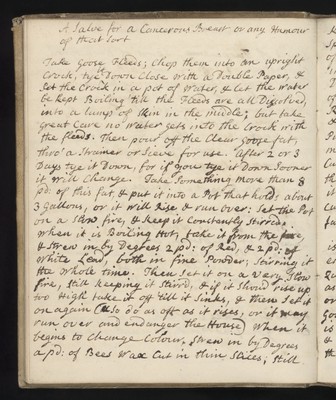 A Salve for a Cancerous Breast or any Humour
of that Sort
Take Goose Fleeds; Chop them into an upright
Crock, tye Down Close with a Double Paper, &
Set the Crock in a pot of Water, & Let the water
be kept Boiling till the Fleeds are all Disolved,
into a lump of Skin in the middle; but take
great Care no water gets into the Crock with
the fleeds. Then pour off the Clear goose fat,
thro' a Strainer or Sieve for use. After 2 or 3
Days tye it Down, for if you tye it Down Sooner
it will Change. Take Something more than 8
pd: of this fat, & put it into a Pot that holds about
3 Gallons, or it will Rise & run over: Set the Pot
on a Slow fire, & keep it Constantly Stirring
when it is Boiling Hot, take it from the fire,
& Strew in by Degrees 2 pd: of Red, & 2 pd: of
White Lead, both in fine Powder, Stirring it
the whole time. Then Set it on a very Slow
fire, still keeping it Stir'd, & if it Shou'd rise up
too High take it off till it Sinks, & then Set it
on again (& so do as oft as it rises, or it may
run over and endanger the House) When it
begins to Change Colour, Strew in by Degrees
a pd: of Bees Wax Cut in thin Slices; Still